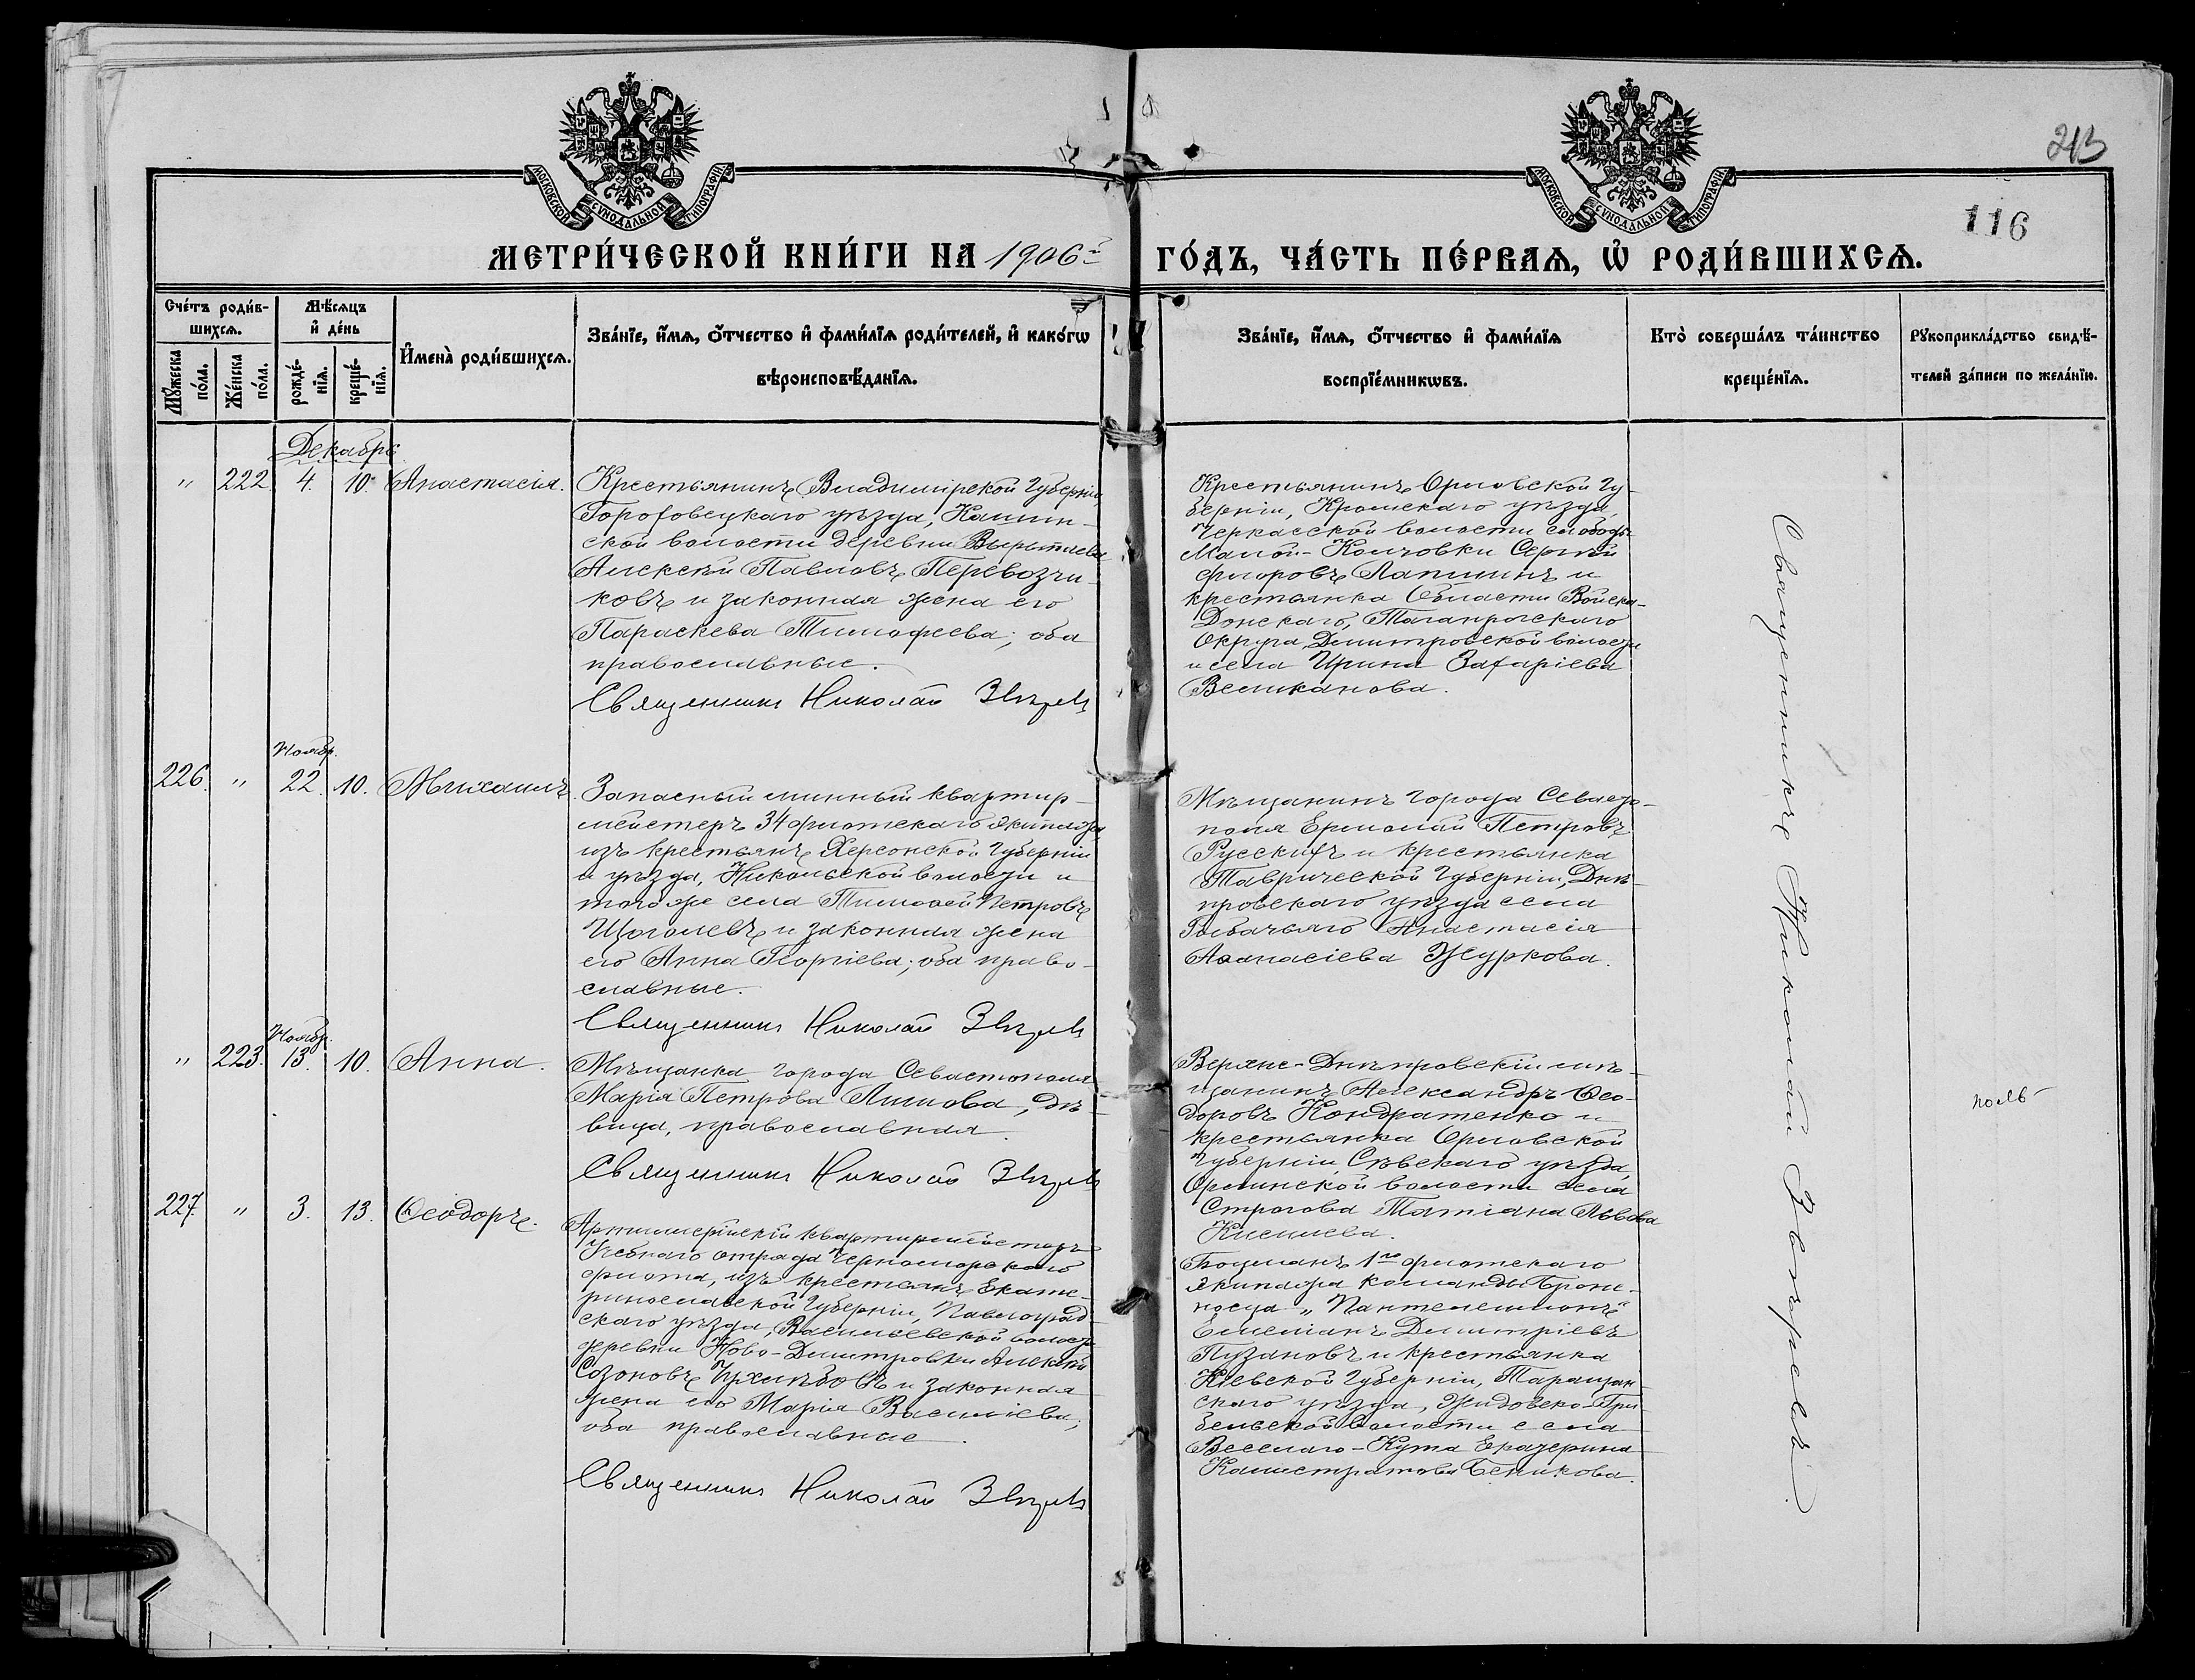 213
116
МОСКОВСКОЙ СѴНОДАЛЬНОЙ ТИПОГРАФІИ
МОСКОВСКОЙ СѴНОДАЛЬНОЙ ТИПОГРАФІИ
МЕТРИ́ЧЕСКОЙ КНИ́ГИ НА 1906й ГО́ДЪ, ЧА́СТЬ ПЕ́РВАѦ, Ѡ҆ РОДИ́ВШИХСѦ.
Сче́тъ роди́в-
шихсѧ.
Мꙋ́жеска по́ла.
Же́нска по́ла.
Мѣ́сѧцъ
и҆ де́нь
рожде́-нїѧ.
креще́-нїѧ.
И҆мена̀ роди́вшихсѧ.
Зва́нїе, и҆́мѧ, ѻ҆́тчество и҆ фами́лїѧ роди́телей, и҆ како́гѡ
вѣроисповѣ́данїѧ.
Зва́нїе, и҆́мѧ, ѻ҆́тчество и҆ фами́лїѧ
воспрїе́мникѡвъ.
Кто̀ соверша́лъ та́инство
креще́нїѧ.
Рꙋкоприкла́дство свидѣ́-
телей за́писи по жела́нїю.
Декабрь
" 222. 4. 10. Анастасія.
Крестьянинъ Владимірской Губерніи,
Гороховецкаго уѣзда,
ской волости деревни
Алексѣй Павловъ Перевозчи-
ковъ и законная жена его
Параскева Тимофеева; оба
православные.
Священникъ Николай Звѣревъ
Крестьянинъ Орловской Гу-
берніи, Кромскаго уѣзда,
Черкасской волости слободы
Малой-Колчовки Сергѣй
Флоровъ Лапшинъ и
крестьянка Области Войска-
Донскаго, Таганрогскаго
Округа, Дмитровской волости
и села Ирина Захаріева
Великанова.
Священникъ Николай Звѣревъ.
Ноябр.
226. " 22. 10. Михаилъ.
Запасный минный квартир-
мейстеръ 34 флотскаго экипажа,
изъ крестьянъ Херсонской Губерніи
и уѣзда, Никольской волости и
того же села Тимоѳей Петровъ
Щоголевъ и законная жена
его Анна Георгіева; оба право-
славные.
Священникъ Николай Звѣревъ
Мѣщанинъ города Севасто-
поля Ермолай Петровъ
Русскихъ и крестьянка
Таврической Губерніи, Днѣ-
провскаго уѣзда села
Голбачьяго Анастасія
Аѳанасіева Журкова.
Ноябр.
" 223. 13. 10. Анна.
Мѣщанка города Севастополя
Марія Петрова Лимова, дѣ-
вица, православная.
Священникъ Николай Звѣревъ
Верхне-Днѣпровскій мѣ-
щанинъ Александръ Ѳео-
доровъ Кондратенко и
крестьянка Орловской
Губерніи, Сѣвскаго уѣзда,
волости села
Строгова Татіана Львова
Киселева.
227. " 3. 13. Ѳеодоръ.
Артиллерійскій квартирмейстеръ
Учебнаго отряда Черноморскаго
флота, изъ крестьянъ Екате-
ринославской Губерніи, Павлоград-
скаго уѣзда, Васильевской волости
деревни Ново-Дмитровки Алексѣй
Созоновъ и законная
жена его Марія Василіева;
оба православные.
Священникъ Николай Звѣревъ
Боцманъ 1го флотскаго
экипажа команды Броне-
носца „Пантелеимонъ"
Емеліанъ Димитріевъ
Пузановъ и крестьянка
Кіевской Губерніи, Таращан-
скаго уѣзда, Жидовско-Гре-
бельской волости села
Веселаго-Кута Екатерина
Калистратова Беликова.